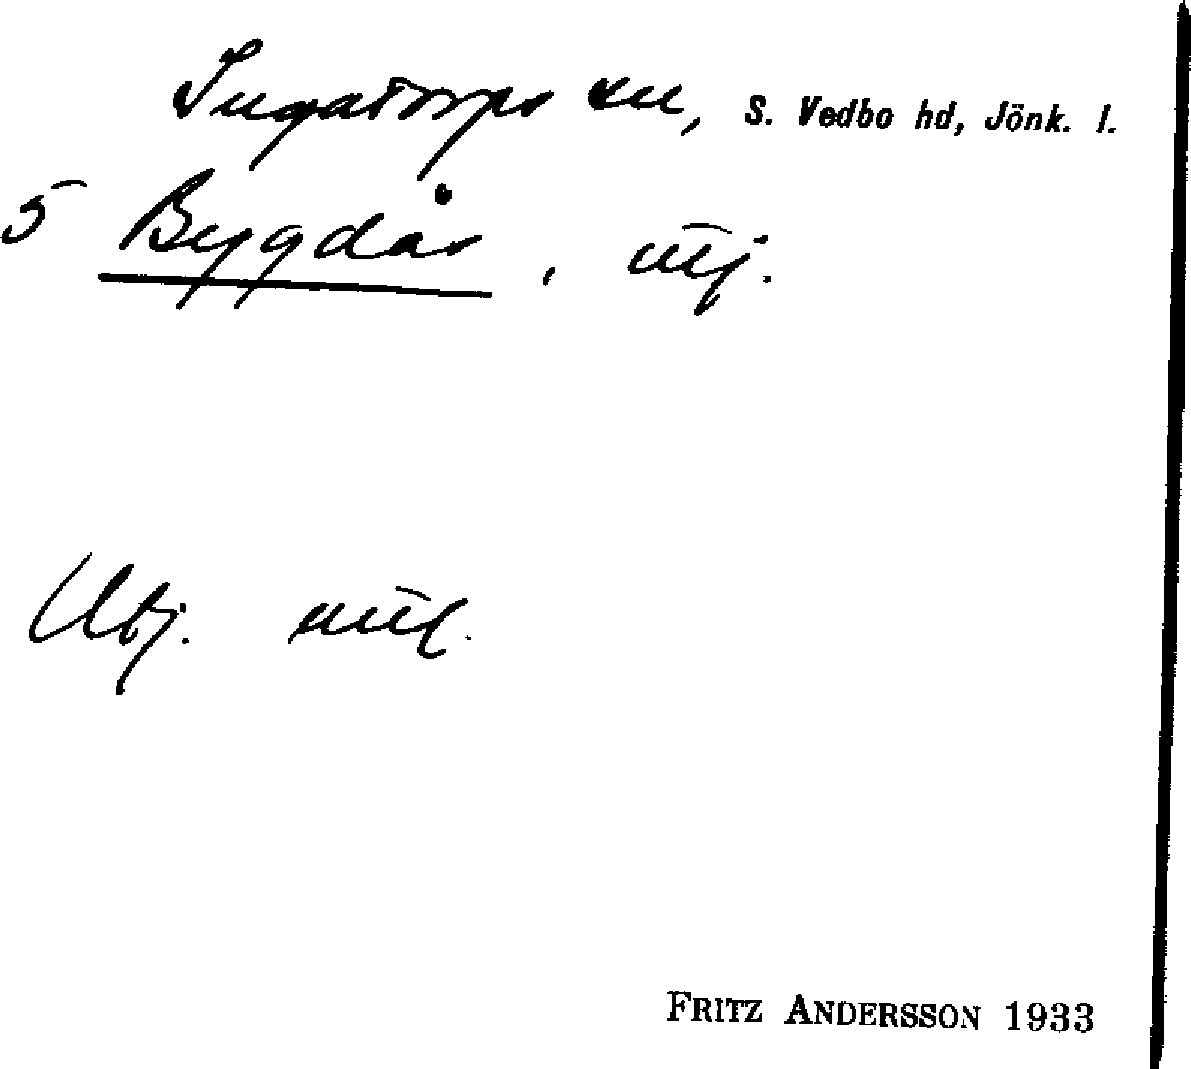 Ingatorps sn, S. Vedbo hd, Jönk. l.
5 Bygdås,
FRITZ ANDERSSON 1933